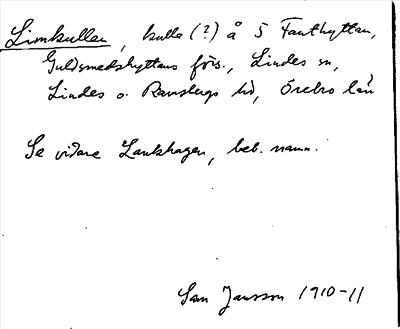 Limkullen, kulle (?) å 5 Fanthyttan,
Guldsmedshyttans förs., Lindes sn,
Lindes o. Ramsbergs hd, Örebro län
Se vidare Lankhagen, beb. namn.
Sam Jansson 1910-11